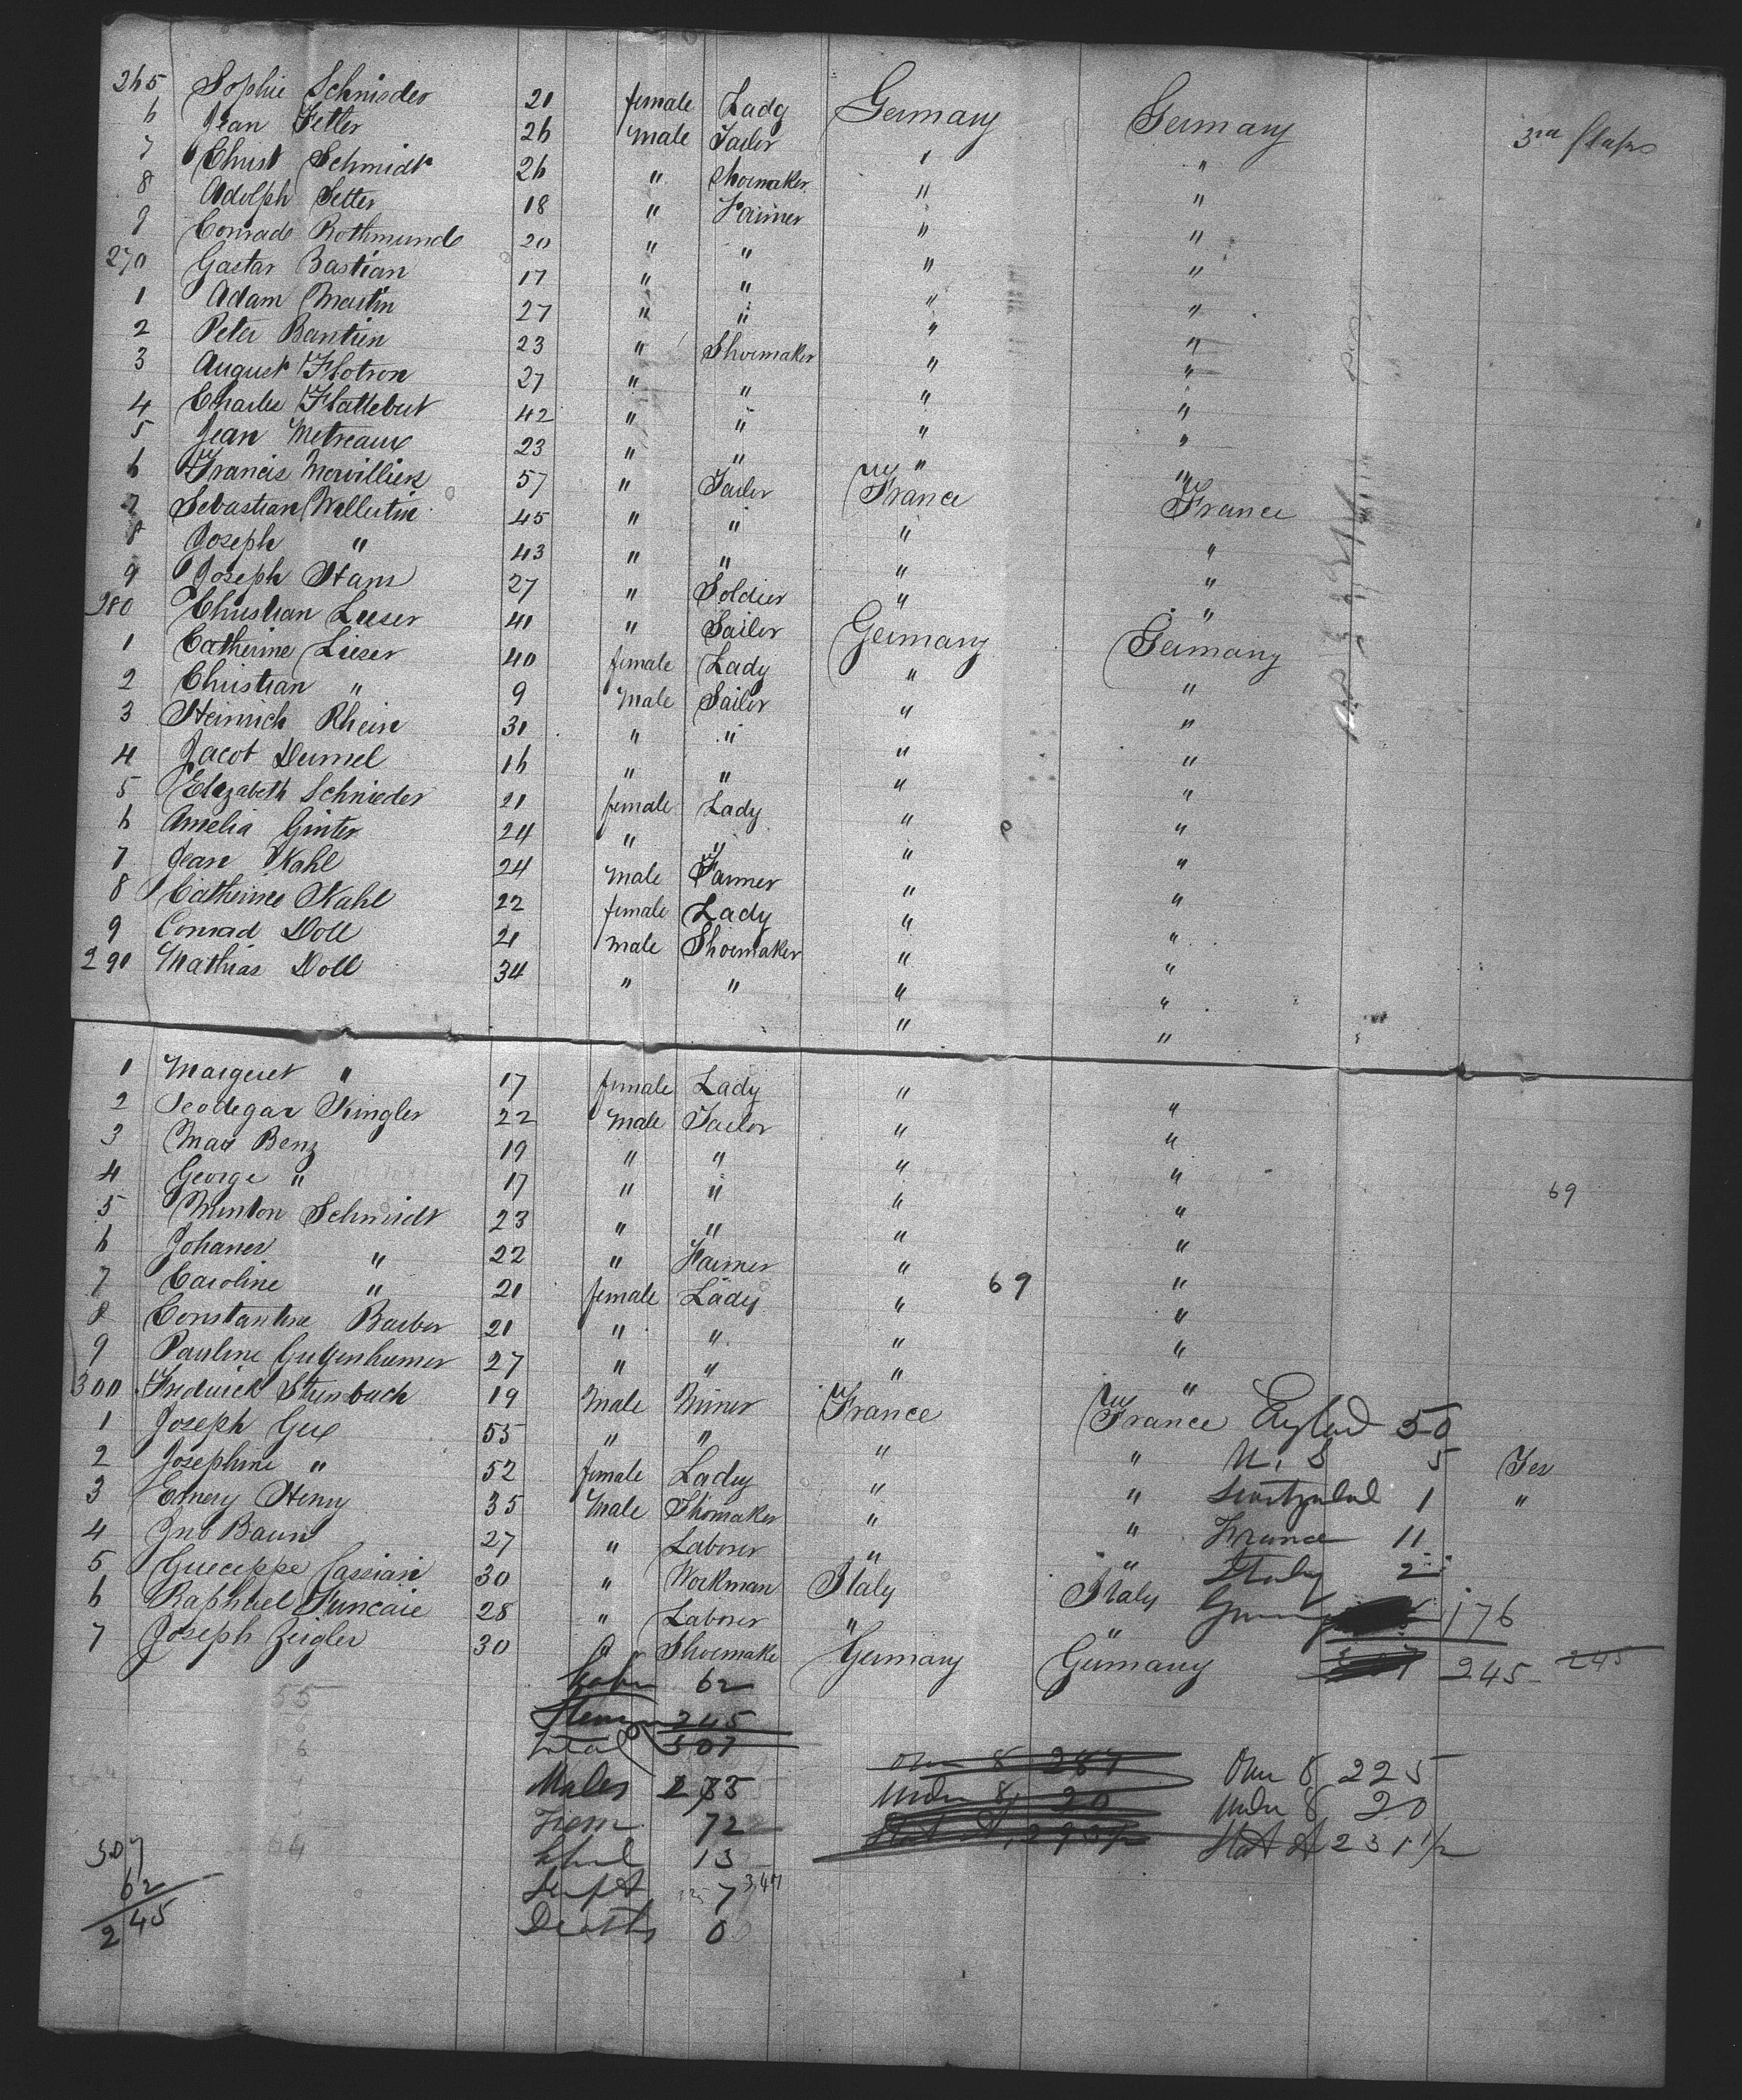 265 Sophie Schnieder 21 female Lady Germany Germany 3rd Class
6 Jean Fetter 26 male Tailor " "
7 Christ Schmidt 26 " Shoemaker " "
8 Adolph Setter 18 " Farmer " "
9 Conrade Rothmunde 20 " " " "
270 Gastar Bastian 17 " " " "
1 Adam Martin 27 " " " "
2 Peter Bantien 23 " Shoemaker " "
3 August Flotron 27 " " " "
4 Charles Flattebut 42 " " " "
5 Jean Metreaux 23 " " " "
6 Francis Morvilliers 57 " Tailor France France
7 Sebastian Wellutin 45 " " " "
8 Joseph " 43 " " " "
9 Joseph Hans 27 " Soldier " "
280 Christian Leeser 41 " Sailor Germany Germany
1 Catherine Lieser 40 female Lady " "
2 Christian " 9 Male Sailor " "
3 Heinrich Rhein 30 " " " "
4 Jacot Dumel 16 " " " "
5 Elezabeth Schnieder 21 female Lady " "
6 Amelia Ginter 24 " " " "
7 Jean Kahl 24 male Farmer " "
8 Catherine Kahl 22 female Lady " "
9 Conrad Doll 21 male Shoemaker " "
290 Mathias Doll 34 " " " "
1 Margeret " 17 female Lady " "
2 Leodegar Kingler 22 male Tailor " "
3 Max Benz 19 " " " "
4 George " 17 " " " " 69
5 Minton Schmidt 23 " " " "
6 Johanes " 22 " Farmer " "
7 Caroline " 21 female Lady " 69 "
8 Constantine Barber 21 " " " "
9 Pauline Gugenheimer 27 " " " "
300 Frederick Steinbach 19 Male Miner France France England 50
1 Joseph Gex 55 " " " " U. S 5 Yes
2 Josephine " 52 female Lady " " Switzerland 1 "
3 Emery Henry 35 Male Shomaker " " France 11
4 Jno Baun 27 " Laborer " " Italy 2
5 Gueceppe Cassiani 30 " Workman Italy Italy Germany 176
6 Raphael Funcaie 28 " Laborer " "
7 Joseph Zeigler 30 " Shoemake Germany Germany 245 245
Cabin 62
Steerage 245
Total 307
Males
Fem 72
Child 13
Inft 7
Deaths 0
Over 8 287
Under 8 20
Over 8 225
Under 8 20
Stat A 231 1/2
307
62
245